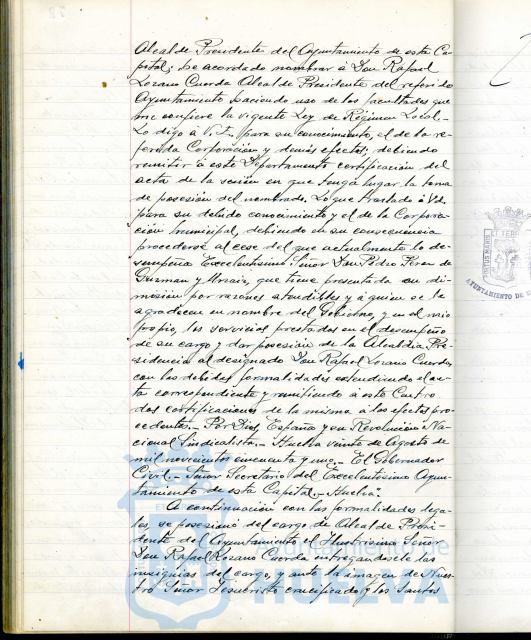 Alcalde Presidente del Ayuntamiento de esta Ca-
pital; he acordado nombrar á Don Rafael
Lozano Cuerda Alcalde Presidente del referido
Ayuntamiento haciendo uso de las facultades que
me confiere la vigente Ley de Régimen Local.-
Lo digo á V.I. para su conocimiento, el de la re-
ferida Corporación y demás efectos; debiendo
remitir á este Departamento certificación del
acta de la sesión en que tenga lugar la toma
de posesión del nombrado. Lo que traslado á Vd.
para su debido conocimiento y el de la Corpora-
ción Municipal, debiendo en su consecuencia
procederse al cese del que actualmente lo de-
sempeña Excelentísimo Señor Don Pedro Perez de
Guzman y Urzaiz, que tiene presentada su di-
misión por razones atendibles y á quien se le
agradecen en nombre del Gobierno, y en el mio
propio, los servicios prestados en el desempeño
de su cargo y dar posesión de la Alcaldia Pre-
sidencia al designado Don Rafael Lozano Cuerda,
con las debidas formalidades extendiendo el ac-
ta correspondiente y remitiendo á este Centro
dos certificaciones de la misma á los efectos pro-
cedentes.- Por Dios, España y su Revolución Na-
cional Sindicalista.- Huelva veinte de Agosto de
mil novecientos cincuenta y uno.- El Gobernador
Civil.- Señor Secretario del Excelentísimo Ayun-
tamiento de esta Capital.- Huelva."
A continuación con las formalidades lega-
les, se posesionó del cargo de Alcalde Presi-
dente del Ayuntamiento el Ilustrisimo Señor
Don Rafael Lozano Cuerda entregandosele las
insignias del cargo, y ante la imagen de Nues-
tro Señor Jesucristo crucificado y los Santos
HUELVA
AYUNTAMIENTO DE